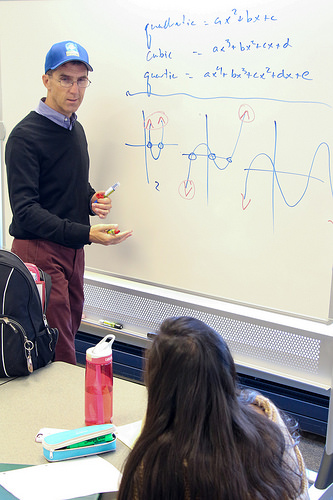 quadratic = ax²+bx+c
cubic = ax³+bx²+cx+d
quartic = ax⁴+bx³+cx²+dx+e
2